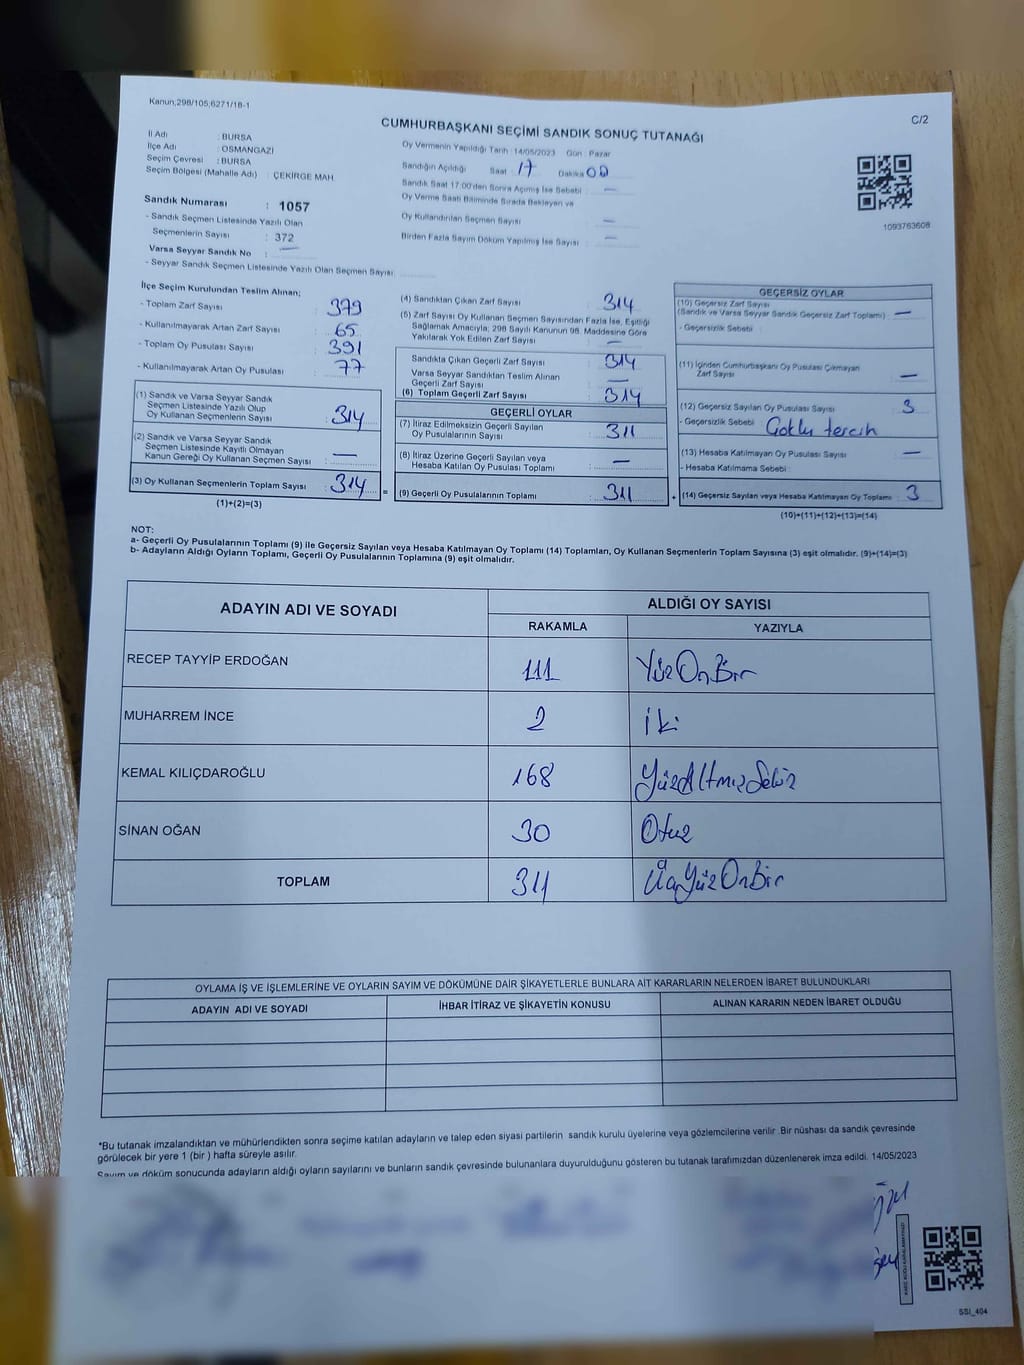 Kanun;298/105;6271/18-1
C/2
CUMHURBAŞKANI SEÇİMİ SANDIK SONUÇ TUTANAĞI
İl Adı : BURSA
İlçe Adı : OSMANGAZİ
Seçim Çevresi : BURSA
Seçim Bölgesi (Mahalle Adı) : ÇEKİRGE MAH
Oy Vermenin Yapıldığı Tarih :14/05/2023 Gün : Pazar
Sandığın Açıldığı Saat : 17 Dakika : 00
Sandık Saat 17:00'den Sonra Açılmış İse Sebebi : —
Oy Verme Saati Bitiminde Sırada Bekleyen ve
Oy Kullandırılan Seçmen Sayısı : —
Birden Fazla Sayım Döküm Yapılmış İse Sayısı : —
1093763608
Sandık Numarası : 1057
- Sandık Seçmen Listesinde Yazılı Olan
Seçmenlerin Sayısı : 372
Varsa Seyyar Sandık No : —
- Seyyar Sandık Seçmen Listesinde Yazılı Olan Seçmen Sayısı:
İlçe Seçim Kurulundan Teslim Alınan;
- Toplam Zarf Sayısı : 379
- Kullanılmayarak Artan Zarf Sayısı : 65
- Toplam Oy Pusulası Sayısı : 391
- Kullanılmayarak Artan Oy Pusulası : 77
(1) Sandık ve Varsa Seyyar Sandık
Seçmen Listesinde Yazılı Olup
Oy Kullanan Seçmenlerin Sayısı : 314
(2) Sandık ve Varsa Seyyar Sandık
Seçmen Listesinde Kayıtlı Olmayan
Kanun Gereği Oy Kullanan Seçmen Sayısı : —
(3) Oy Kullanan Seçmenlerin Toplam Sayısı : 314 =
(1)+(2)=(3)
(4) Sandıktan Çıkan Zarf Sayısı : 314
(5) Zarf Sayısı Oy Kullanan Seçmen Sayısından Fazla İse, Eşitliği
Sağlamak Amacıyla; 298 Sayılı Kanunun 98. Maddesine Göre
Yakılarak Yok Edilen Zarf Sayısı : —
Sandıkta Çıkan Geçerli Zarf Sayısı : 314
Varsa Seyyar Sandıktan Teslim Alınan
Geçerli Zarf Sayısı : —
(6) Toplam Geçerli Zarf Sayısı : 314
GEÇERLİ OYLAR
(7) İtiraz Edilmeksizin Geçerli Sayılan
Oy Pusulalarının Sayısı : 311
(8) İtiraz Üzerine Geçerli Sayılan veya
Hesaba Katılan Oy Pusulası Toplamı : —
(9) Geçerli Oy Pusulalarının Toplamı : 311 +
GEÇERSİZ OYLAR
(10) Geçersiz Zarf Sayısı
(Sandık ve Varsa Seyyar Sandık Geçersiz Zarf Toplamı) : —
- Geçersizlik Sebebi :
(11) İçinden Cumhurbaşkanı Oy Pusulası Çıkmayan
Zarf Sayısı : —
(12) Geçersiz Sayılan Oy Pusulası Sayısı : 3
- Geçersizlik Sebebi : Çoklu tercih
(13) Hesaba Katılmayan Oy Pusulası Sayısı : —
- Hesaba Katılmama Sebebi :
(14) Geçersiz Sayılan veya Hesaba Katılmayan Oy Toplamı : 3
(10)+(11)+(12)+(13)=(14)
NOT:
a- Geçerli Oy Pusulalarının Toplamı (9) ile Geçersiz Sayılan veya Hesaba Katılmayan Oy Toplamı (14) Toplamları, Oy Kullanan Seçmenlerin Toplam Sayısına (3) eşit olmalıdır. (9)+(14)=(3)
b- Adayların Aldığı Oyların Toplamı, Geçerli Oy Pusulalarının Toplamına (9) eşit olmalıdır.
ADAYIN ADI VE SOYADI
ALDIĞI OY SAYISI
RAKAMLA YAZIYLA
RECEP TAYYİP ERDOĞAN 111 YüzOnBir
MUHARREM İNCE 2 iki
KEMAL KILIÇDAROĞLU 168 YüzAltmışSekiz
SİNAN OĞAN 30 Otuz
TOPLAM 311 ÜçYüzOnBir
OYLAMA İŞ VE İŞLEMLERİNE VE OYLARIN SAYIM VE DÖKÜMÜNE DAİR ŞİKAYETLERLE BUNLARA AİT KARARLARIN NELERDEN İBARET BULUNDUKLARI
ADAYIN ADI VE SOYADI İHBAR İTİRAZ VE ŞİKAYETİN KONUSU ALINAN KARARIN NEDEN İBARET OLDUĞU
*Bu tutanak imzalandıktan ve mühürlendikten sonra seçime katılan adayların ve talep eden siyasi partilerin sandık kurulu üyelerine veya gözlemcilerine verilir .Bir nüshası da sandık çevresinde
görülecek bir yere 1 (bir ) hafta süreyle asılır.
Sayım ve döküm sonucunda adayların aldığı oyların sayılarını ve bunların sandık çevresinde bulunanlara duyurulduğunu gösteren bu tutanak tarafımızdan düzenlenerek imza edildi. 14/05/2023
SSI_404